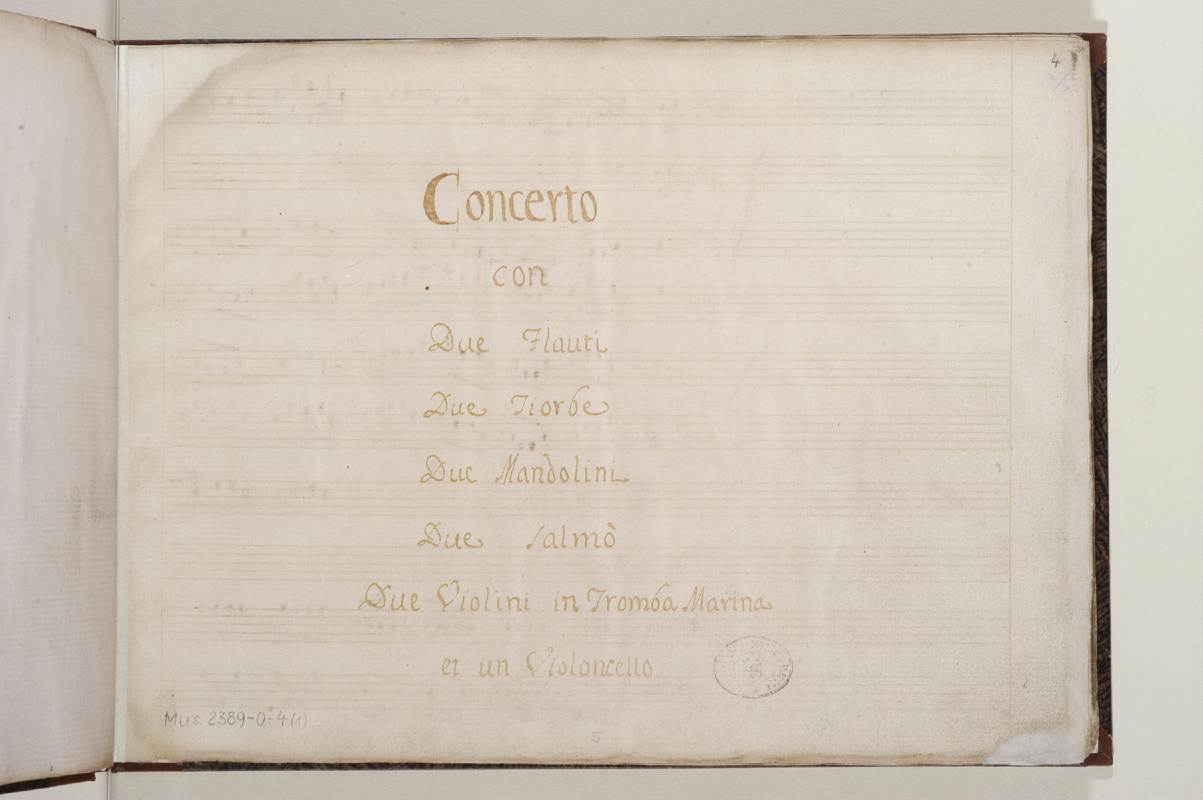 4
Concerto
con
Due Flauti
Due Tiorbe
Due Mandolini
Due Salmò
Due Violini in Tromba Marina
et un Violoncello
Mus. 2389-O-4(1)
5